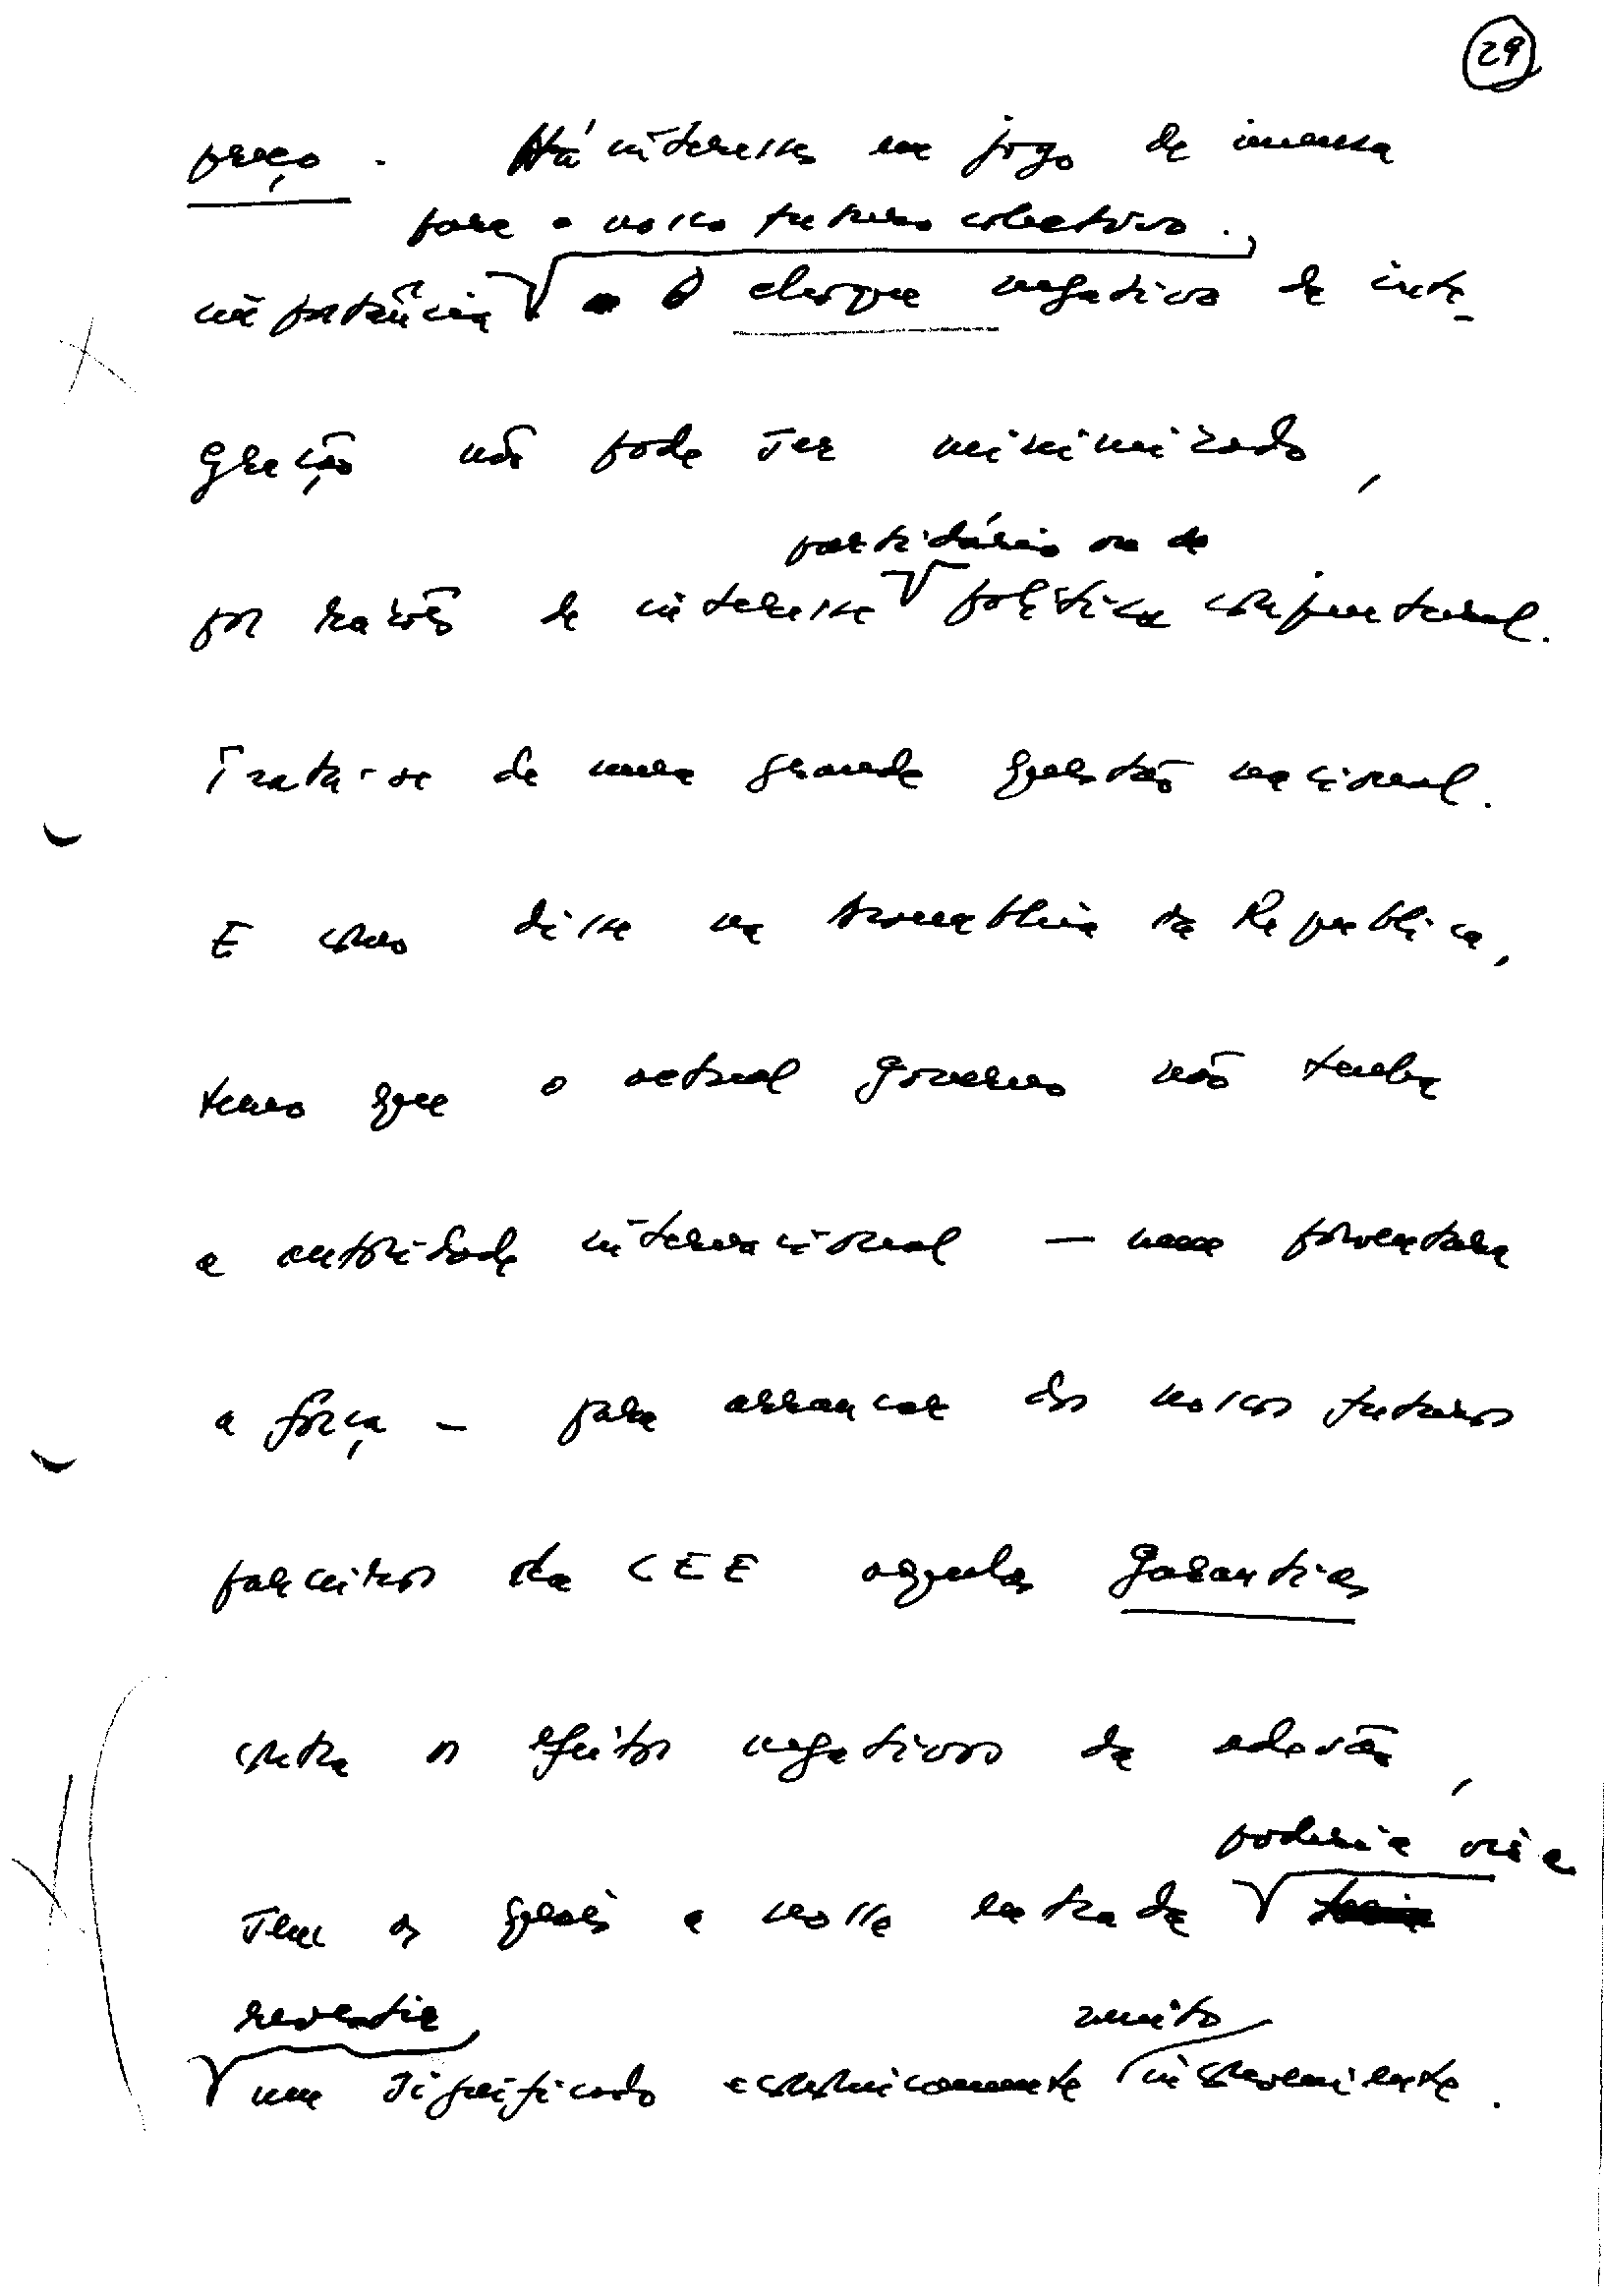 29
preço. Há interesses em jogo de imensa
para o nosso futuro colectivo.
importância O choque negativo da inte-
gração não pode ser minimizado,
partidário ou de
por razões de interesse política conjuntural.
Trata-se de uma grande questão nacional.
E como disse na Assembleia da República,
temo que o actual governo não tenha
a autoridade internacional — nem porventura
a força — para arrancar dos nossos futuros
parceiros da CEE aquelas garantias
contra os efeitos negativos da adesão,
poderia vir a
sem as quais a nossa entrada
revestir muito
um significado economicamente inconveniente.